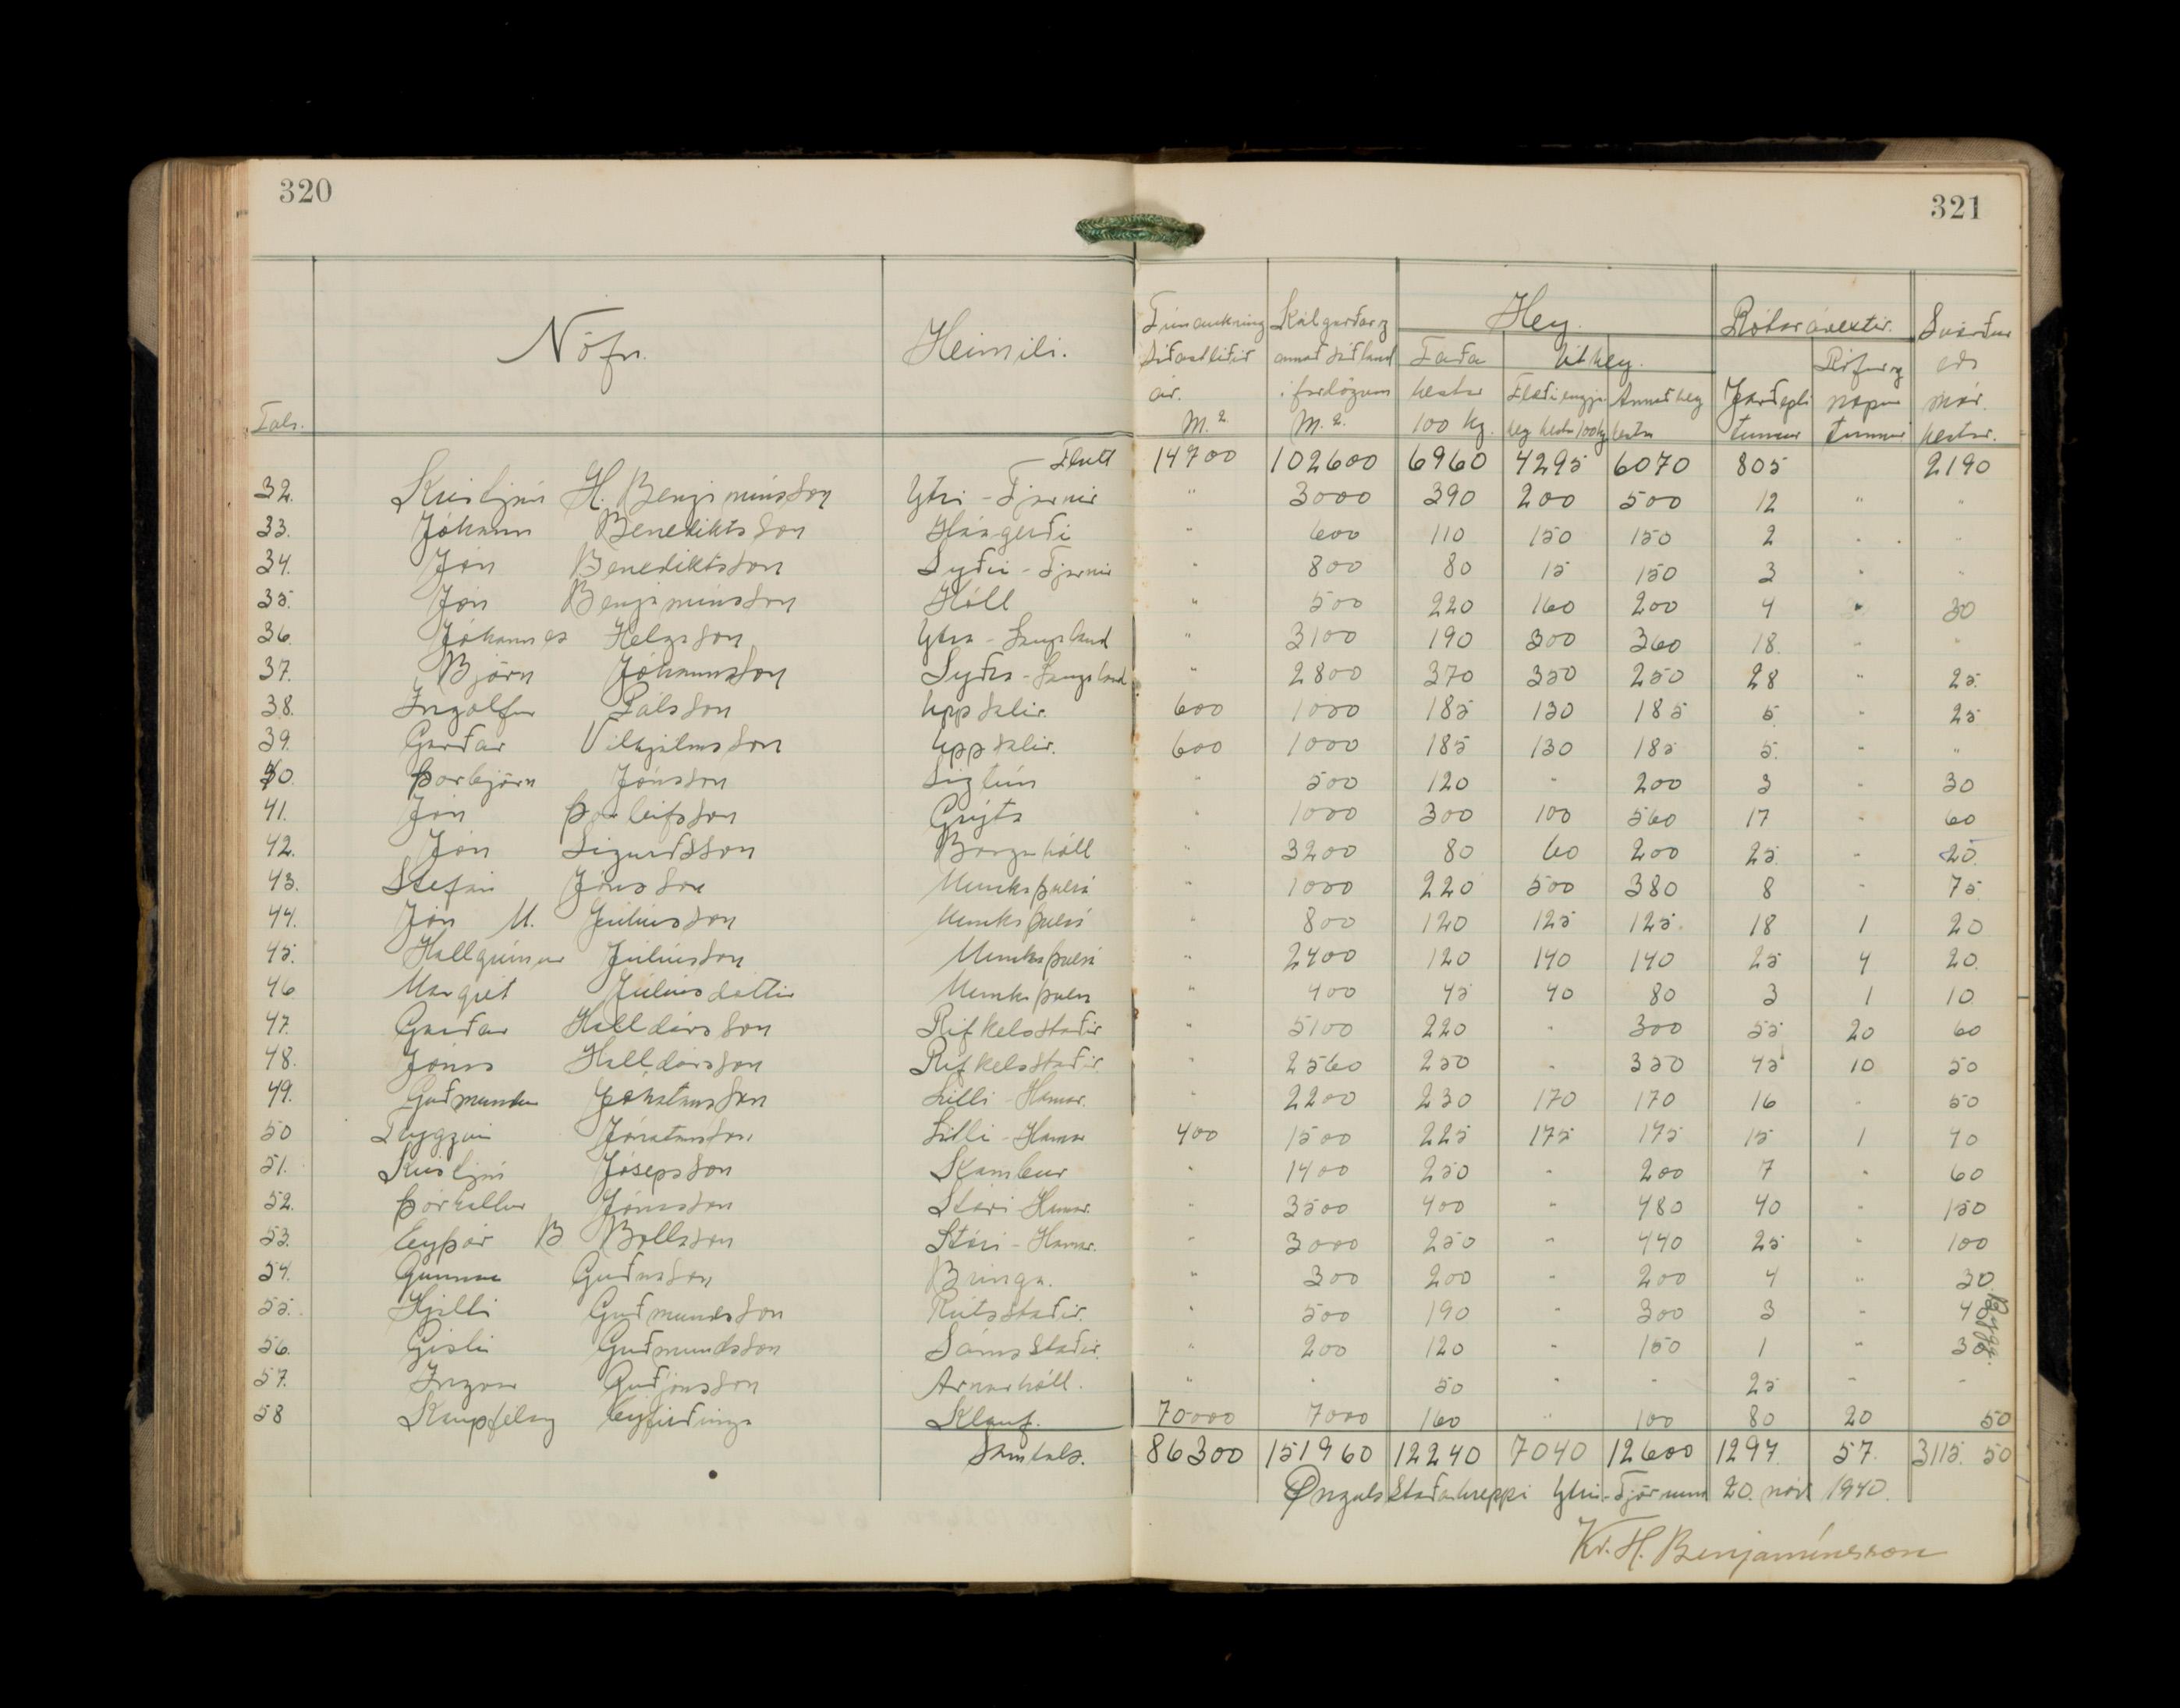 320
321
Nöfn.
Heimili.
Tals.
Túnaukning síðastliðið ár. M.2
Kálgarðar og annað sáðland í fardögum M.2.
Hey.
Taða hestar 100 kg.
Úthey.
Flæðiengja hey hestar 100 kg
Annað hey hestar
Rótarávextir.
Jarðepli tunnur
Rófur og næpur tunnur
Svörður eða mór. hestar.
Flutt 14700 102600 6960 4295 6070 805 2190
32. Kristján H. Benjamínsson Ytri-Tjarnir " 3000 390 200 500 12 " "
33. Jóhann Benediktsson Háagerði " 600 110 150 150 2 " "
34. Jón Benediktsson Syðri-Tjarnir " 800 80 15 150 3 " "
35. Jón Benjamínsson Hóll " 500 220 160 200 4 " 30
36. Jóhannes Helgason Ytra-Laugaland " 3100 190 300 360 18. " "
37. Björn Jóhannsson Syðra-Laugaland " 2800 370 350 250 28 " 25.
38. Ingólfur Pálsson Uppsalir. 600 1000 185 130 185 5. " 25
39. Garðar Vilhjálmsson Uppsalir. 600 1000 185 130 185 5. " "
40. Þorbjörn Jónsson Sigtún " 500 120 " 200 3 " 30
41. Jón Þorleifsson Grýta " 1000 300 100 560 17 " 60
42. Jón Sigurðsson Borgarhóll " 3200 80 60 200 25. " 20.
43. Stefán Jónsson Munkaþverá " 1000 220 500 380 8 " 75.
44. Jón M. Júlíusson Munkaþverá " 800 120 125 125. 18 1 20
45. Hallgrímur Júlíusson Munkaþverá " 2400 120 140 140 25 4 20.
46 Margrét Júlíusdóttir Munkaþverá " 400 45 40 80 3 1 10
47. Garðar Halldórsson Rifkelsstaðir " 5100 220 " 300 55 20 60
48. Jónas Halldórsson Rifkelsstaðir. " 2560 250 " 350 45 10 50
49. Guðmundur Jónatansson Litli-Hamar. " 2200 230 170 170 16 " 50
50 Tryggvi Jónatansson Litli-Hamar 400 1500 225 175 175 15 1 40
51. Kristján Jósepsson Kambur " 1400 250 " 200 7 " 60
52. Þórhallur Jónasson Stóri-Hamar. " 3500 400 " 480 40 " 150
53. Eyþór B Bollason Stóri-Hamar. " 3000 250 " 440 25 " 100
54. Gunnar Guðnason Bringa. " 300 200 " 200 4 " 30
55. Hjalti Guðmundsson Rútsstaðir. " 500 190 " 300 3 " 40
56. Gísli Guðmundsson Sámsstaðir. " 200 120 " 150 1 " 30
Bygg.
57. Ingvar Guðjónsson Arnarhóll. " " 50 " " 25 " "
58 Kaupfélag Eyfirðinga Klauf. 70000 7000 160 " 100 80 20 50
Samtals. 86300 151960 12240 7040 12600 1297. 57. 3115. 50
Öngulsstaðahreppi Ytri-Tjörnum 20. nóv 1940.
Kr. H. Benjamínsson